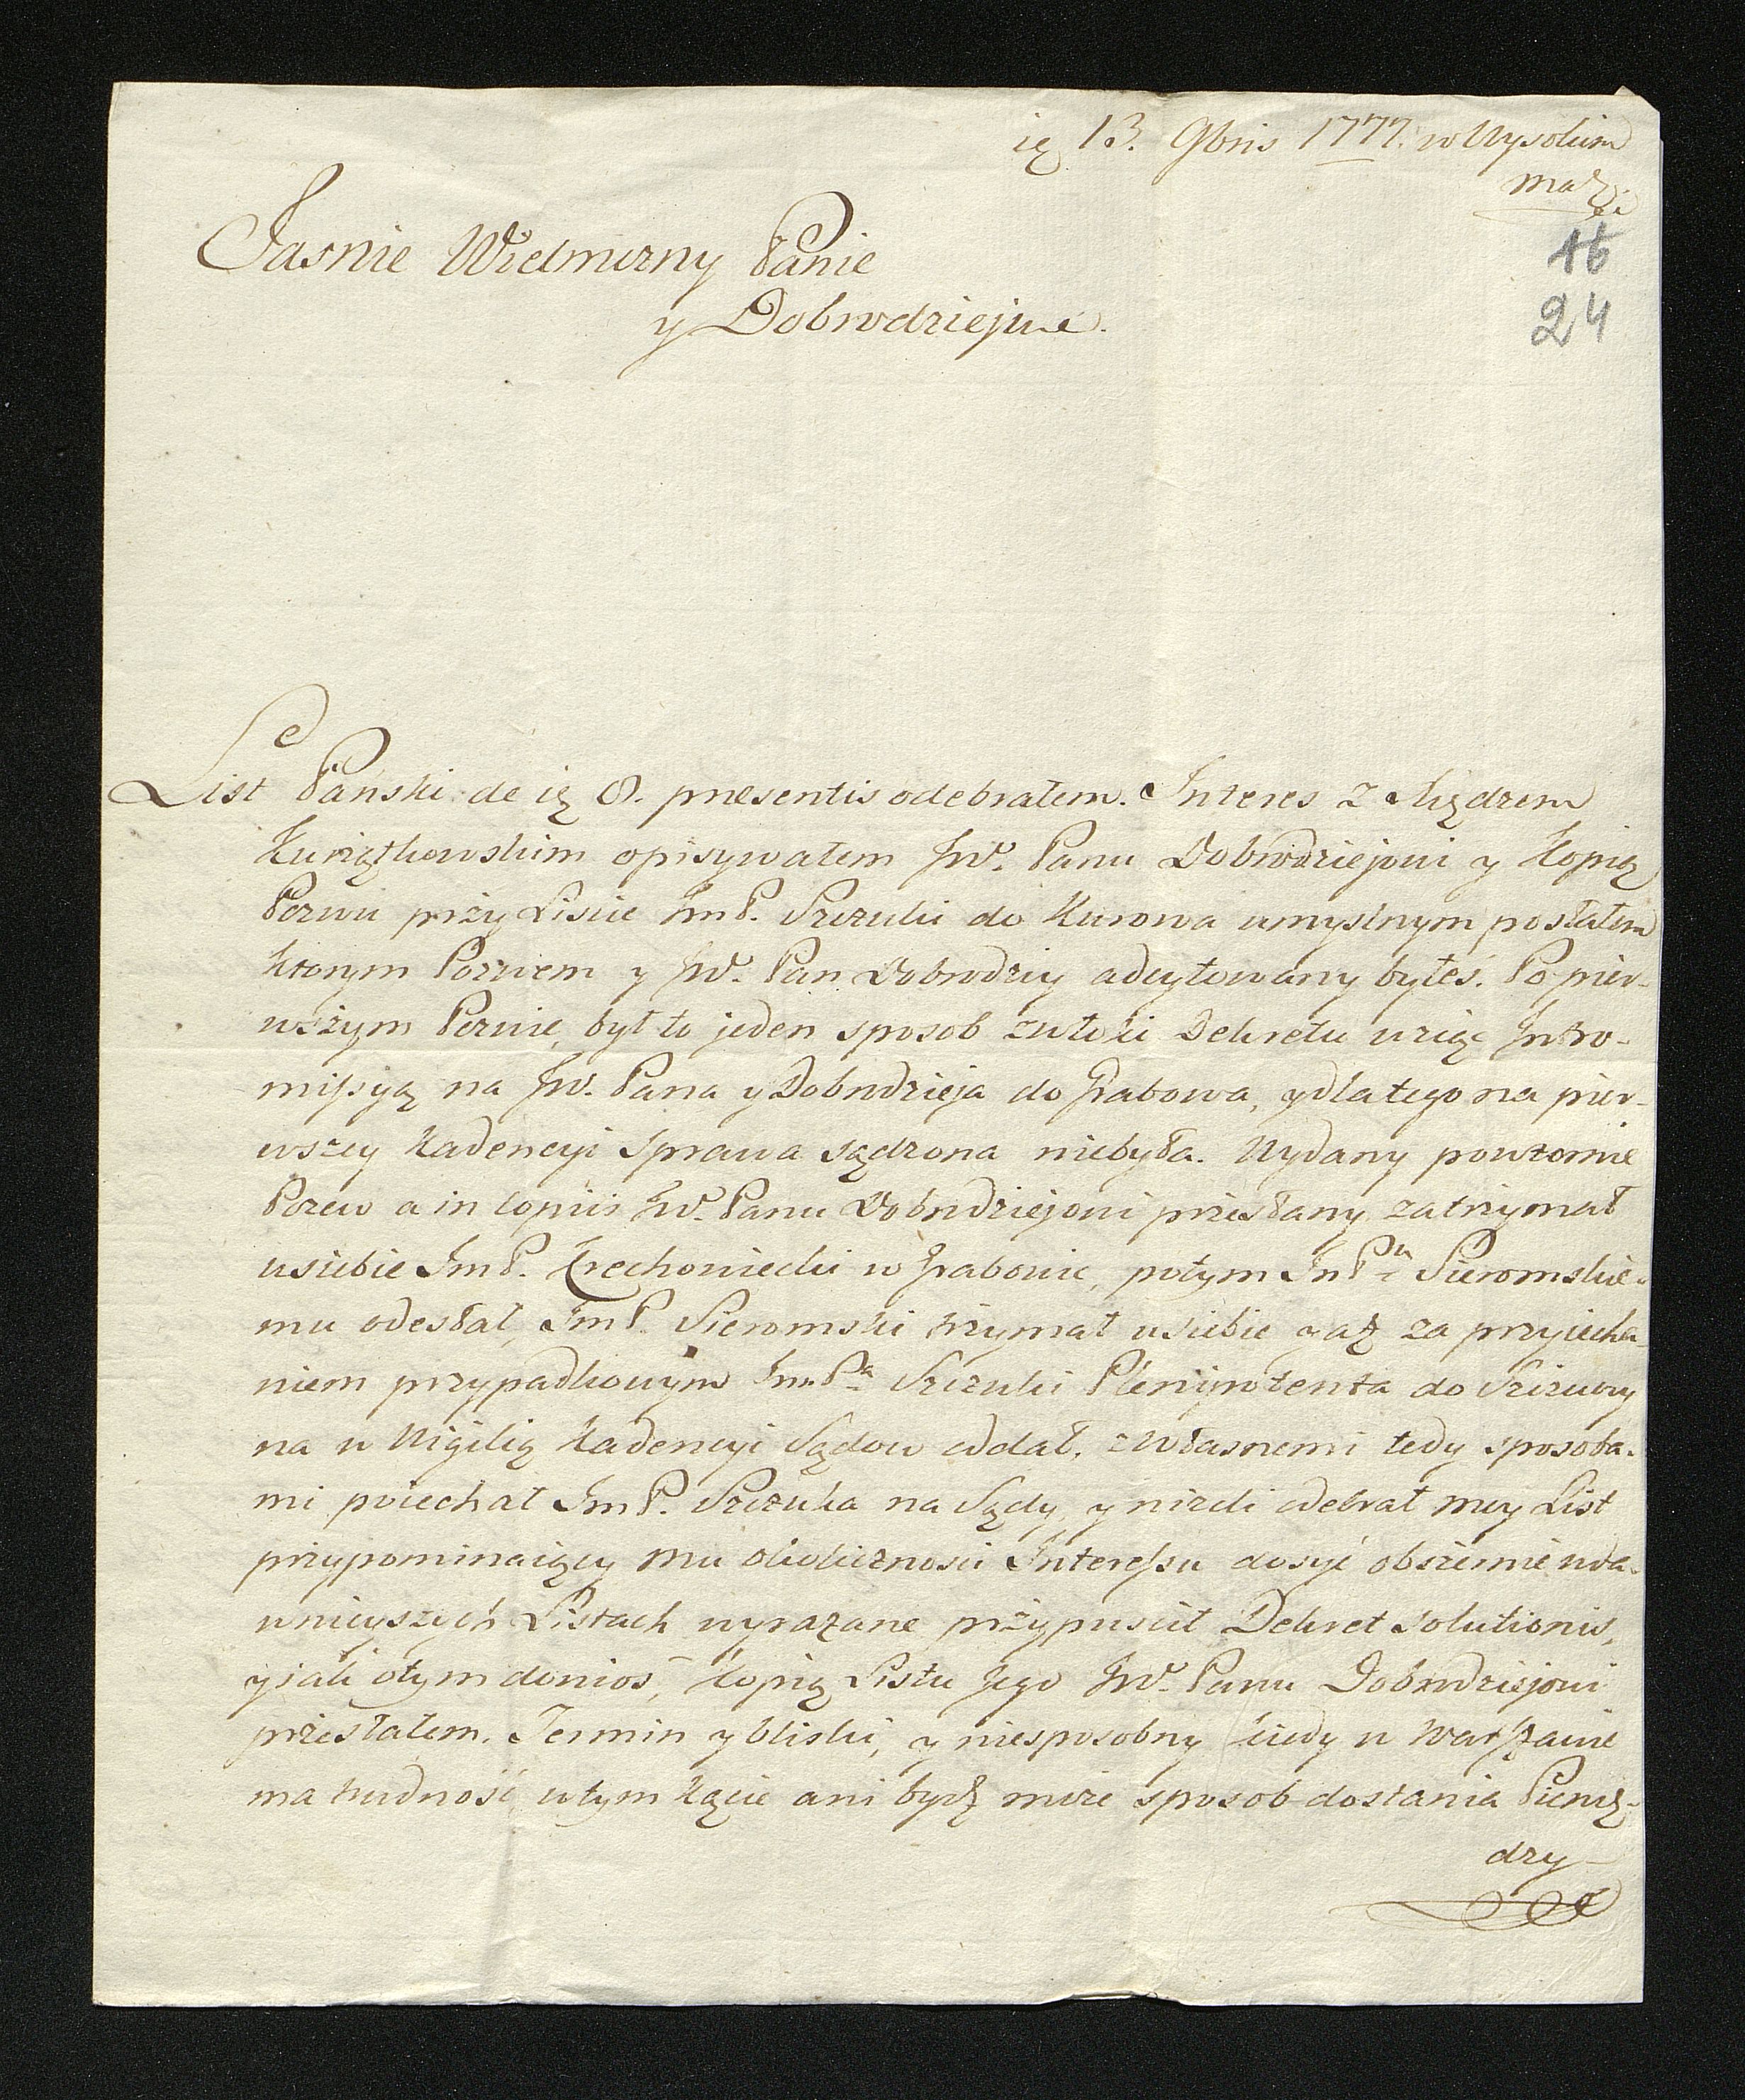 13. 9bris 1777. w Wysokim
Maz
16
24
Jasnie Wielmozny Panie
y Dobrodzieju
List Pański de 8. presentis odebrałem. Interes z Xiędzem
Kwiątkowskim opisywałem JW. Panu Dobrodziejowi y kopią
Pozwu przy Liscie ImP. Szczuki do Kurowa umyslnym posłałem
ktorym Pozwem y JW. Pan Dobrodziey adcytowany byłeś. Po pier-
wszym Pozwie, był to jeden sposob zwłoki Dekretu wziąć Intro-
missyą na JW. Pana y Dobrodzieja do Grabowa, y dlatego na pier-
wszey Kadencyi Sprawa sądzona niebyła. Wydany powtornie
Pozew a in copiis JW. Panu Dobrodziejowi przesłany zatrzymał
usiebie ImP. Trechoniecki w Grabowie, potym Sieromskie-
mu odesłał, ImP. Sieromski trzymał usiebie y aż za przyiecha-
niem przypadkowym ImPa Szczuki Plenipotenta do Szczuczy
na w Wigilią Kadencyi Sądow oddał. z własnemi tedy sposoba-
mi poiechał ImP. Szczuka na Sądy, y nizeli odebrał moy List
przypominaiący mu okolicznosci Interessu dosyć obszernie wda-
wnieyszych Listach wyrażane przypuscił Dekret solutionis,
y iak otym donios, kopią Listu Jego JW. Panu Dobrodziejowi
przesłałem. Termin y bliski, y niesposobny kiedy w Warszawie
ma trudność wtym kącie ani bydź może sposob dostania Pienię-
dzy